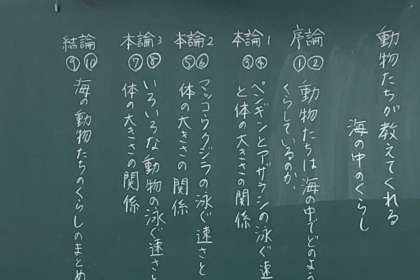 動物たちが教えてくれる
海の中のくらし
序論
①②
動物たちは海の中でどのよ
くらしているのか、
本論1
③④
ペンギンとアザラシの泳ぐ速
と体の大きさの関係
本論2
⑤⑥
マッコウクジラの泳ぐ速さと
体の大きさの関係
本論3
⑦⑧
いろいろな動物の泳ぐ速さと
体の大きさの関係
結論
⑨⑩
海の動物たちのくらしのまとめ